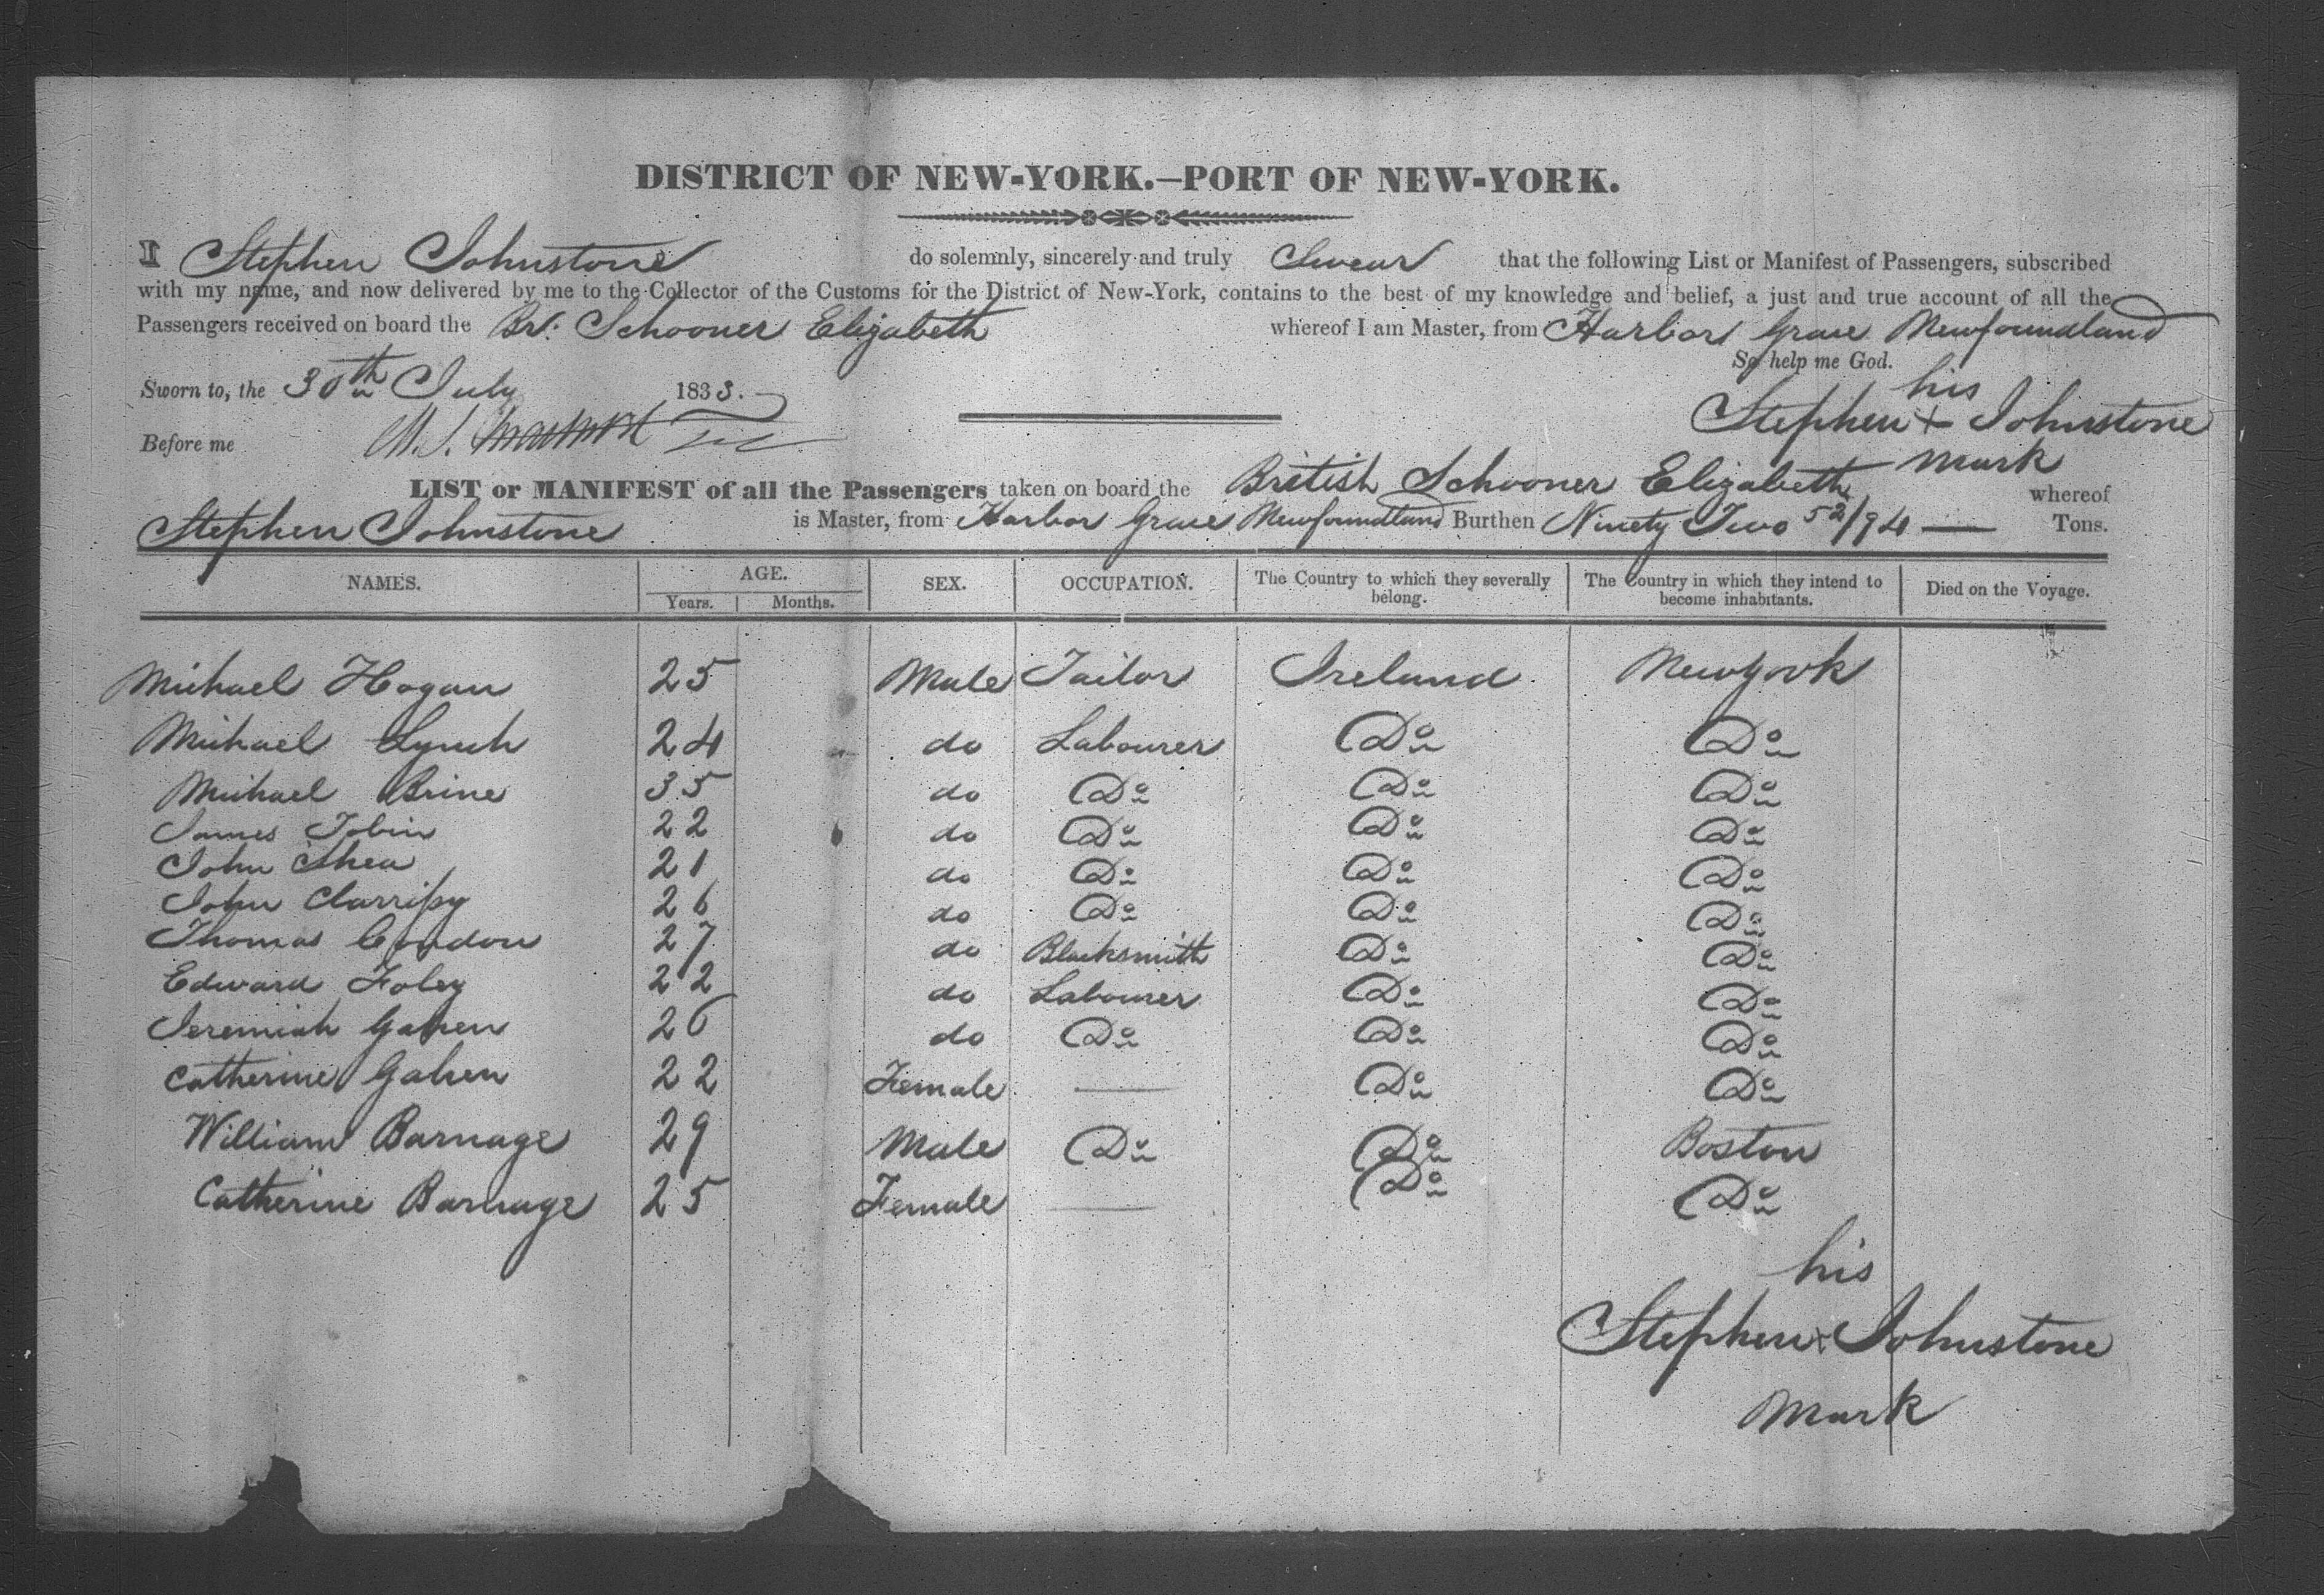 DISTRICT OF NEW-YORK.—PORT OF NEW-YORK.
I Stephen Johnstone do solemnly, sincerely and truly Swear that the following List or Manifest of Passengers, subscribed
with my name, and now delivered by me to the Collector of the Customs for the District of New-York, contains to the best of my knowledge and belief, a just and true account of all the
Passengers received on board the Br. Schooner Elizabeth whereof I am Master, from Harbor Grace Newfoundland
So help me God.
Sworn to, the 30th July 1833.
his
Stephen + Johnstone
mark
Before me
LIST or MANIFEST of all the Passengers taken on board the British Schooner Elizabeth whereof
Stephen Johnstone is Master, from Harbor Grace Newfoundland Burthen Ninety Two 52/94 — Tons.
NAMES. AGE. SEX. OCCUPATION. The Country to which they severally belong. The Country in which they intend to become inhabitants. Died on the Voyage.
Years. Months.
Michael Hogan 25 Male Tailor Ireland Newyork
Michael Lynch 24 do Labourer Do Do
Michael Brine 35 do Do Do Do
James Tobin 22 do Do Do Do
John Shea 21 do Do Do Do
John 26 do Do Do Do
Thomas Condon 27 do Blacksmith Do Do
Edward Foley 22 do Labourer Do Do
Jeremiah 26 do Do Do Do
Catherine Gahen 22 Female — Do Do
William Barnage 29 Male Do Do Boston
Catherine Barnage 25 Female — Do Do
his
Stephen x Johnstone
mark